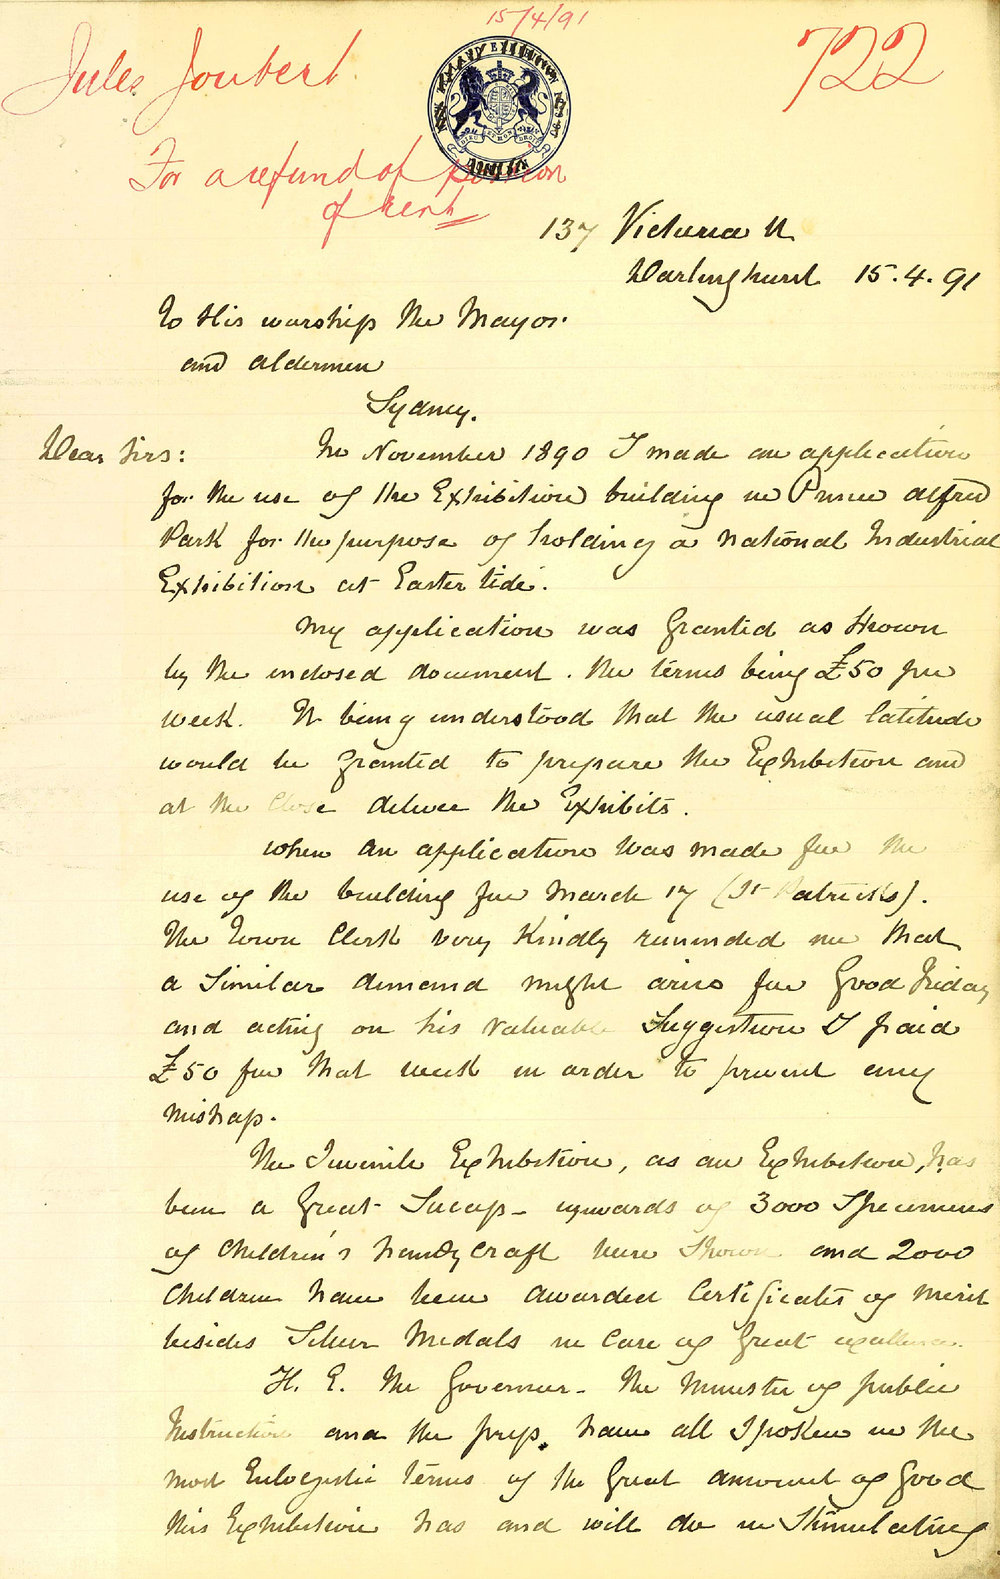 15/4/91
722
Jules Joubert.
For a refund of portion
of rent
137 Victoria St
Darlinghurst 15.4.91
To His worship the Mayor.
and aldermen
Sydney.
Dear Sirs: In November 1890 I made an application
for the use of the Exhibition building in Prince Alfred
Park for the purpose of holding a National Industrial
Exhibition at Easter tide.
My application was granted as shown
by the inclosed document. The terms being £50 per
week. It being understood that the usual latitude
would be granted to prepare the Exhibition and
at the close deliver the Exhibits.
When an application was made for the
use of the building for March 17 (St Patricks).
The Town Clerk very Kindly reminded me that
a similar demand might arise for Good Friday
and acting on his valuable suggestion I paid
£50 for that week in order to prevent any
mishap.
The Juvenile Exhibition, as an Exhibition, has
been a great success - upwards of 3000 specimens
of children's handycraft were shown and 2000
children have been awarded Certificates of merit
besides Silver Medals in case of great excellence.
H. E. the Governor - The Minister of public
Instruction and the press, have all spoken in the
most Eulogistic terms of the great amount of good
this Exhibition has and will do in stimulating